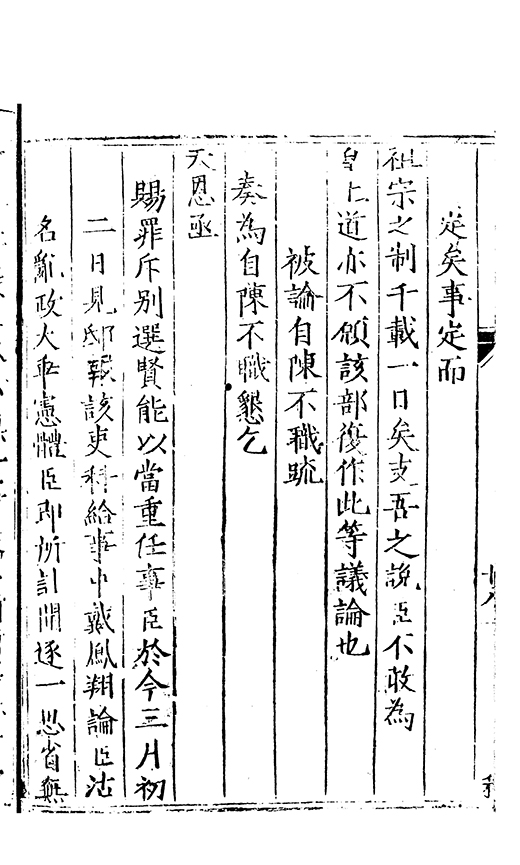 定矣事定而
祖宗之制千載一日矣支吾之說臣不敢為
皇上道亦不願該部復作此等議論也
被論自陳不職疏
奏為自陳不職懇乞
天恩亟
賜罪斥別選賢能以當重任事臣於今三月初
二日見邸報該吏科給事中戴鳳翔論臣沽
名亂政大乖憲體臣即所計開逐一思省無